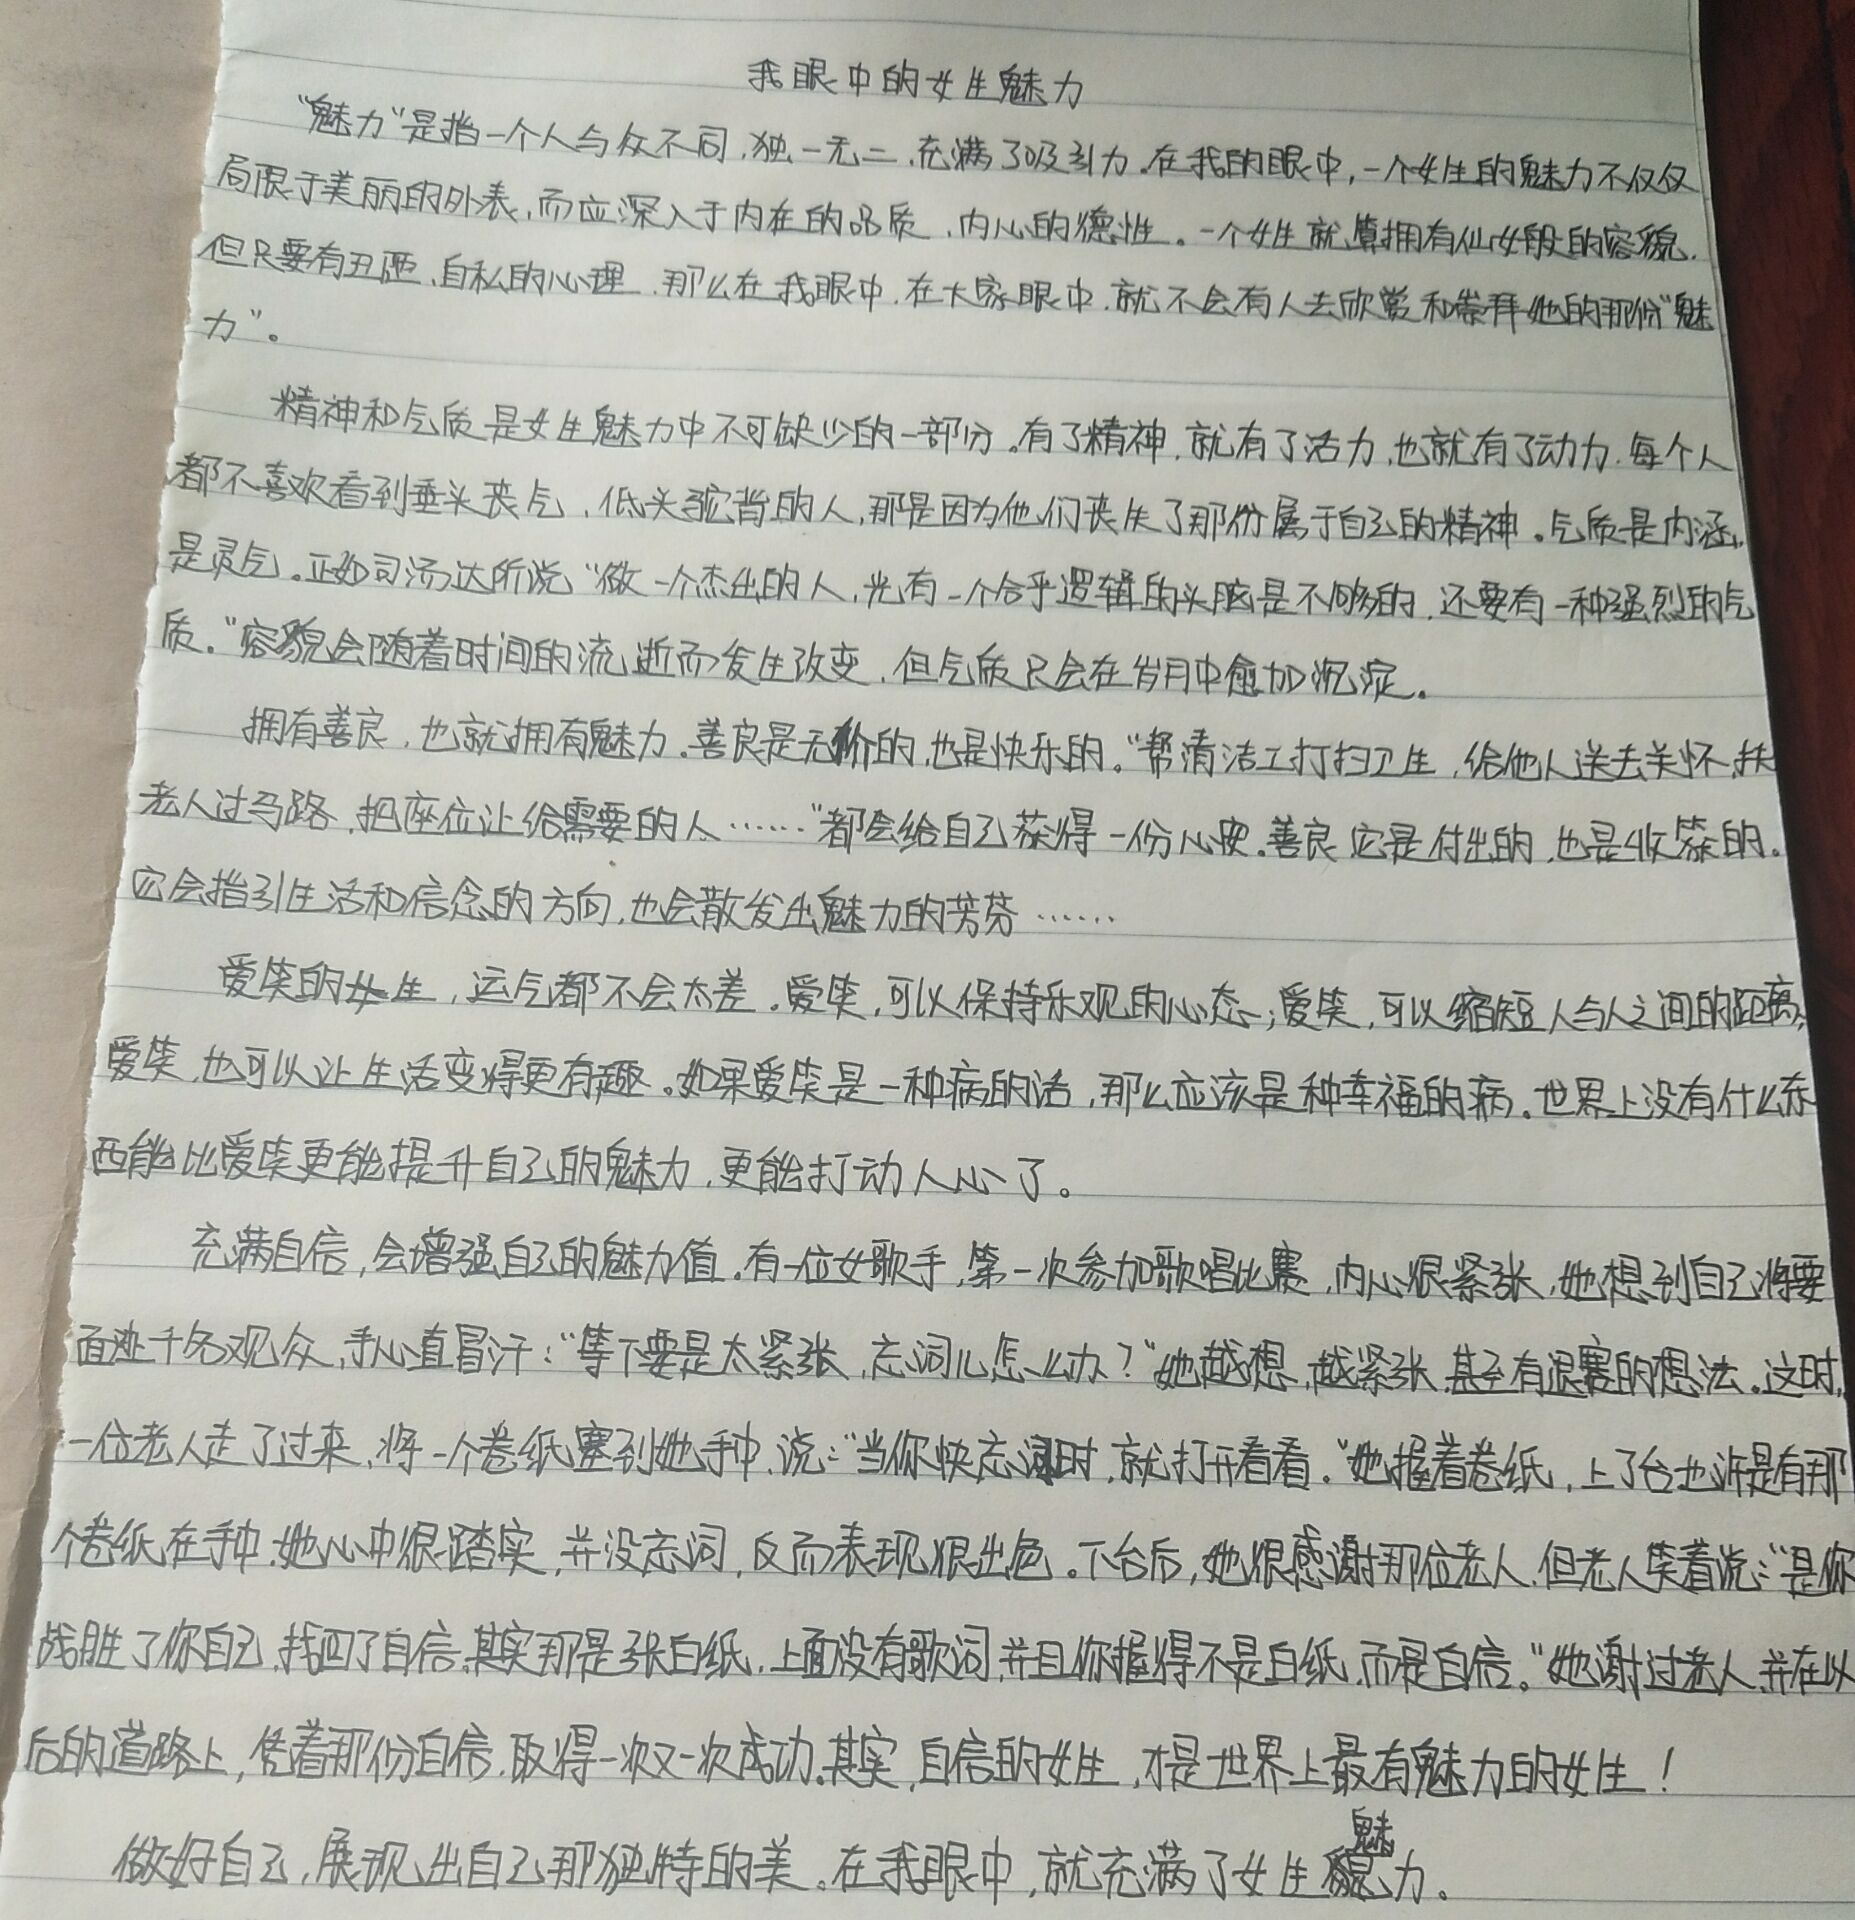 我眼中的女生魅力
“魅力”是指一个人与众不同,独一无二,充满了吸引力。在我的眼中,一个女生的魅力不仅仅
局限于美丽的外表,而应深入于内在的品质,内心的德性。一个女生就算拥有仙女般的容貌,
但只要有丑陋、自私的心理,那么在我眼中,在大家眼中,就不会有人去欣赏和崇拜她的那份“魅
力”。
精神和气质是女生魅力中不可缺少的一部分。有了精神,就有了活力,也就有了动力,每个人
都不喜欢看到垂头丧气,低头驼背的人,那是因为他们丧失了那份属于自己的精神。气质是内涵,
是灵气。正如司汤达所说“做一个杰出的人,光有一个合乎逻辑的头脑是不够的,还要有一种强烈的气
质。”容貌会随着时间的流逝而发生改变,但气质只会在岁月中愈加沉淀。
拥有善良,也就拥有魅力。善良是无价的,也是快乐的。“帮清洁工打扫卫生,给他人送去关怀,扶
老人过马路,把座位让给需要的人……”都会给自己获得一份心安。善良它是付出的,也是收获的。
它会指引生活和信念的方向,也会散发出魅力的芳芬……
爱笑的女生,运气都不会太差。爱笑,可以保持乐观的心态;爱笑,可以缩短人与人之间的距离;
爱笑,也可以让生活变得更有趣。如果爱笑是一种病的话,那么应该是种幸福的病。世界上没有什么东
西能比爱笑更能提升自己的魅力,更能打动人心了。
充满自信,会增强自己的魅力值。有一位女歌手,第一次参加歌唱比赛,内心很紧张,她想到自己将要
面迹千名观众,手心直冒汗:“等下要是太紧张,忘词儿怎么办?”她越想,越紧张,甚至有退赛的想法。这时,
一位老人走了过来,将一个卷纸塞到她手中,说:“当你快忘词时,就打开看看。”她握着卷纸,上了台也许是有那
个卷纸在手中,她心中很踏实,并没忘词,反而表现很出色。下台后,她很感谢那位老人,但老人笑着说:“是你
战胜了你自己,找回了自信,其实那是张白纸,上面没有歌词,并且你握得不是白纸,而是自信。”她谢过老人,并在以
后的道路上,凭着那份自信,取得一次又一次成功。其实,自信的女生,才是世界上最有魅力的女生!
做好自己,展现出自己那独特的美。在我眼中,就充满了女生魅力。